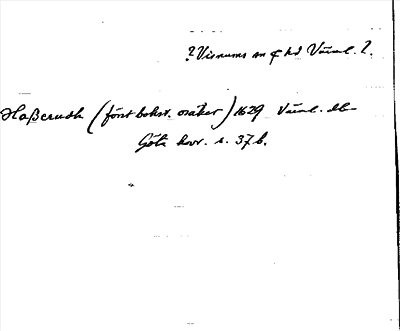 ? Visnums sn o hd Värml. ?
Haßerudh (först bokst. osäker) 1629 Värml. Ab-
Göta kovr. s. 37 b.